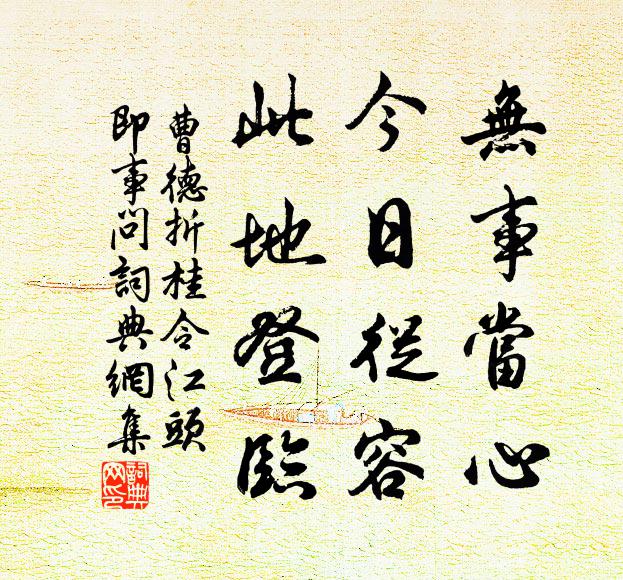 無事當心
今日從容
此地登臨
曹德折桂令江頭
即事問詞典網集
詞典
网印